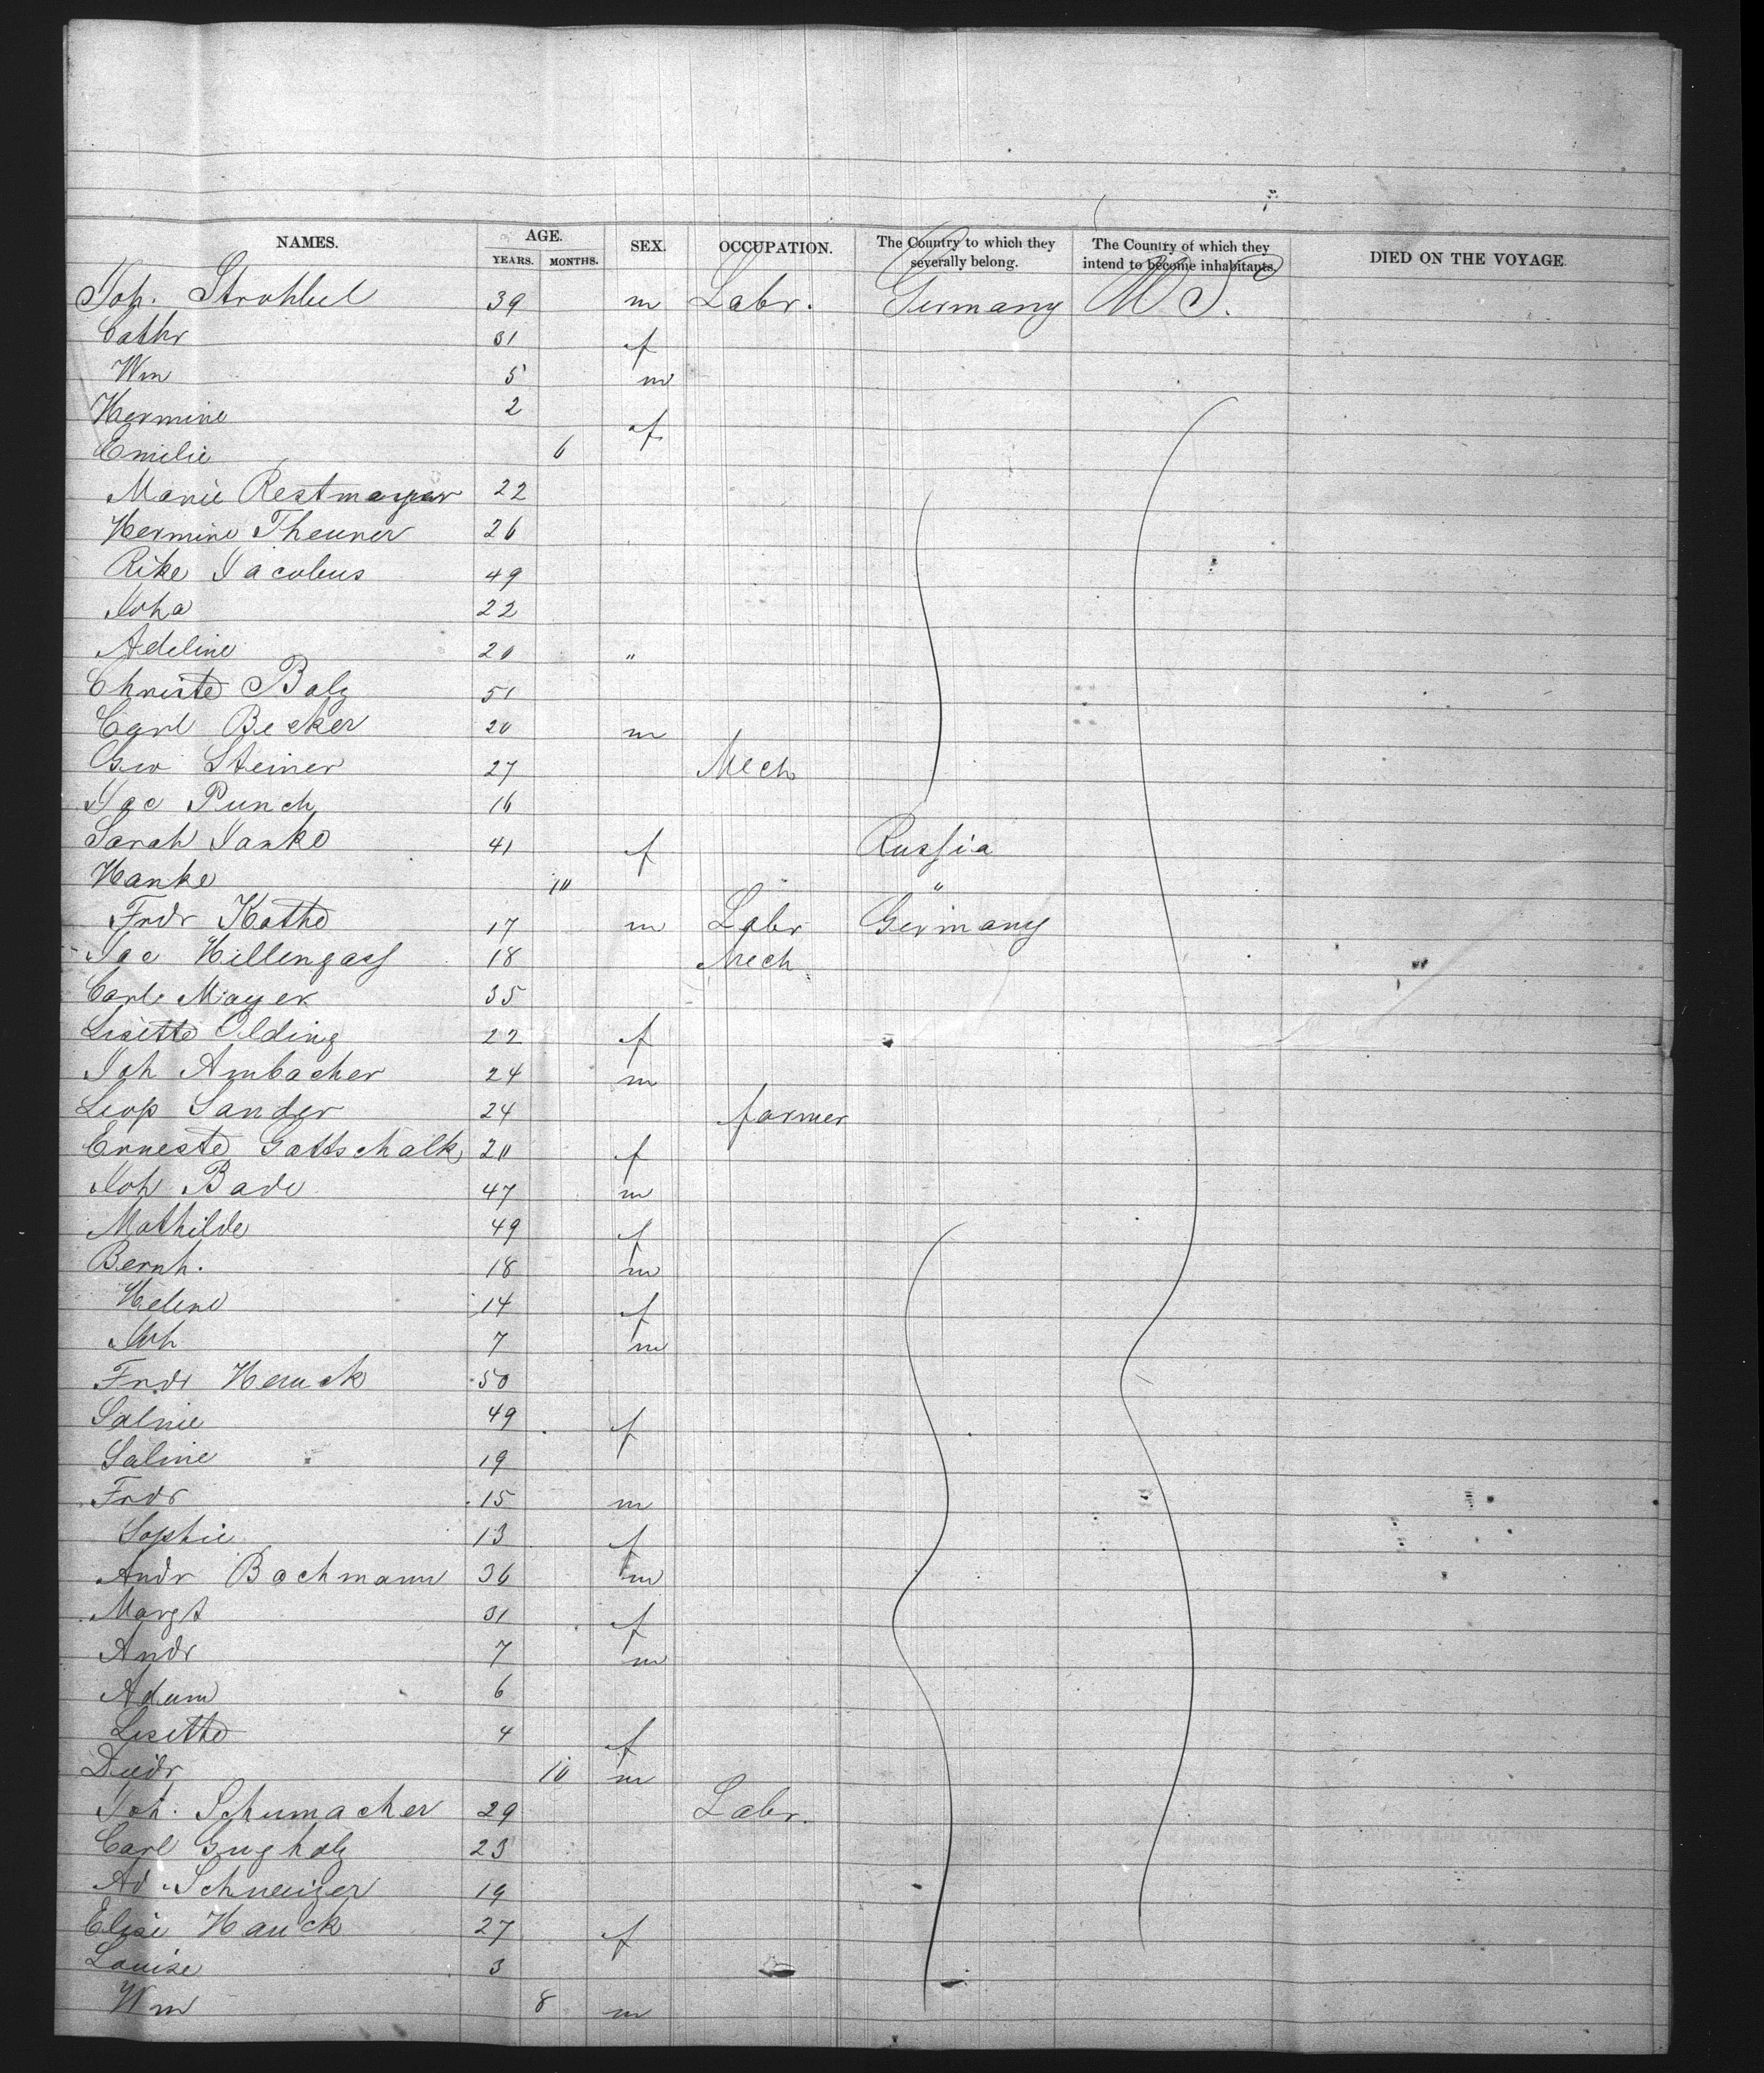 NAMES. AGE. YEARS. MONTHS. SEX. OCCUPATION. The Country to which they severally belong. The Country of which they intend to become inhabitants. DIED ON THE VOYAGE.
Joh. Strohbel 39 m Labr. Germany U S.
Cathr 31 f
Wm 5 m
Hermine 2
Emilie 6 f
Marie Restmayer 22
Hermine Theuner 26
Rike Jacobus 49
Joha 22
Adeline 20 "
Christe Balz 51
Carl Becker 20 m
Geo Steiner 27 Mech
Jac Punch 16
Sarah Janke 41 f Russia
Hanke 10 "
Frdr Kothe 17 m Labr Germany
Jac Hillengass 18 Mech
Carl Mayer 35
Lisette Olding 22 f
Joh Ambacher 24 m
Leop Sander 24 farmer
Erneste Gottschalk 20 f
Joh Bade 47 m
Mathilde 49 f
Bernh. 18 m
Helene 14 f
Joh 7 m
Frdr Hauck 50
Salnie 49 f
Saline 19
Frdr 15 m
Sophie 13 f
Andr Bachmann 36 m
Margt 31 f
Andr 7 m
Adam 6
Lisette 4 f
Diedr 10 m
Joh. Schumacher 29 Labr.
Carl Gugholz 23
Ad Schweizer 19
Elise Hauck 27 f
Louise 3
Wm 8 m